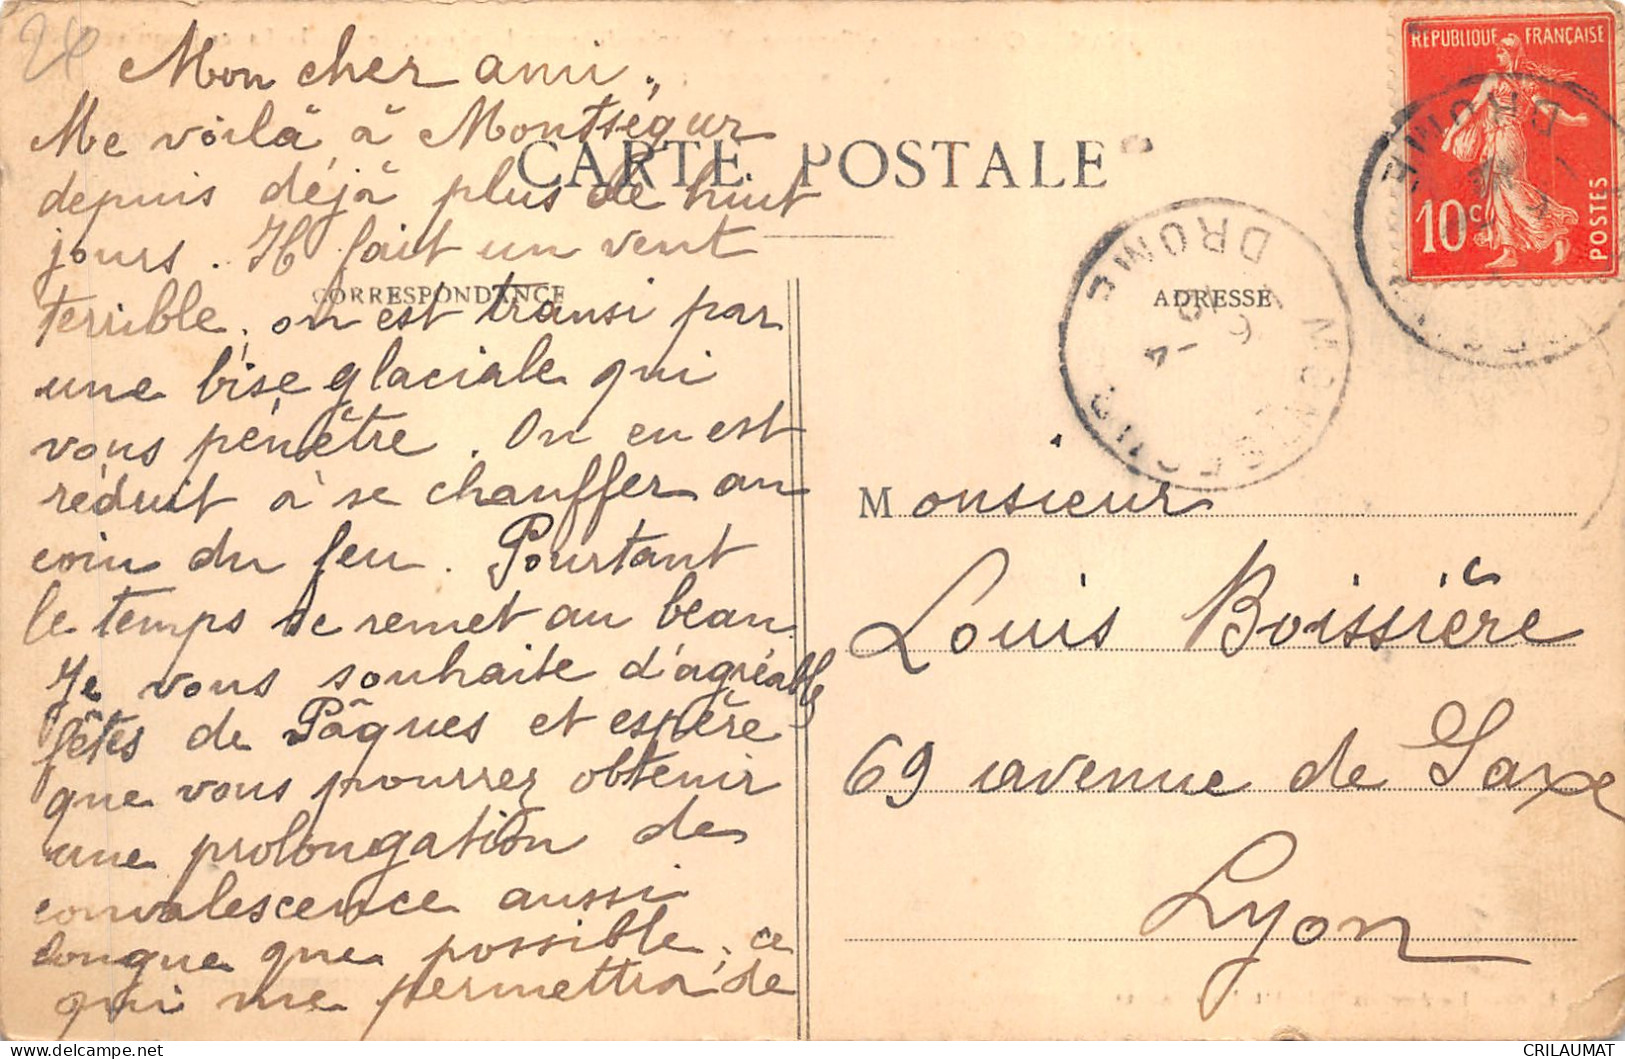 Mon cher ami,
Me voilà à Montségur
depuis déjà plus de huit
jours. Il fait un vent
terrible, on est transi par
une bise glaciale qui
vous pénètre. On en est
réduit à se chauffer au
coin du feu. Pourtant
le temps se remet au beau
Je vous souhaite d'agréables
fêtes de Pâques et espère
que vous pourrez obtenir
une prolongation de
convalescence aussi
longue que possible, ce
qui me permettra de
CARTE POSTALE
CORRESPONDANCE
ADRESSE
REPUBLIQUE FRANÇAISE
10c
POSTES
DROME
MONTSEGUR
DROME
Monsieur
Louis Boissière
69 avenue de Saxe
Lyon
CRILAUMAT